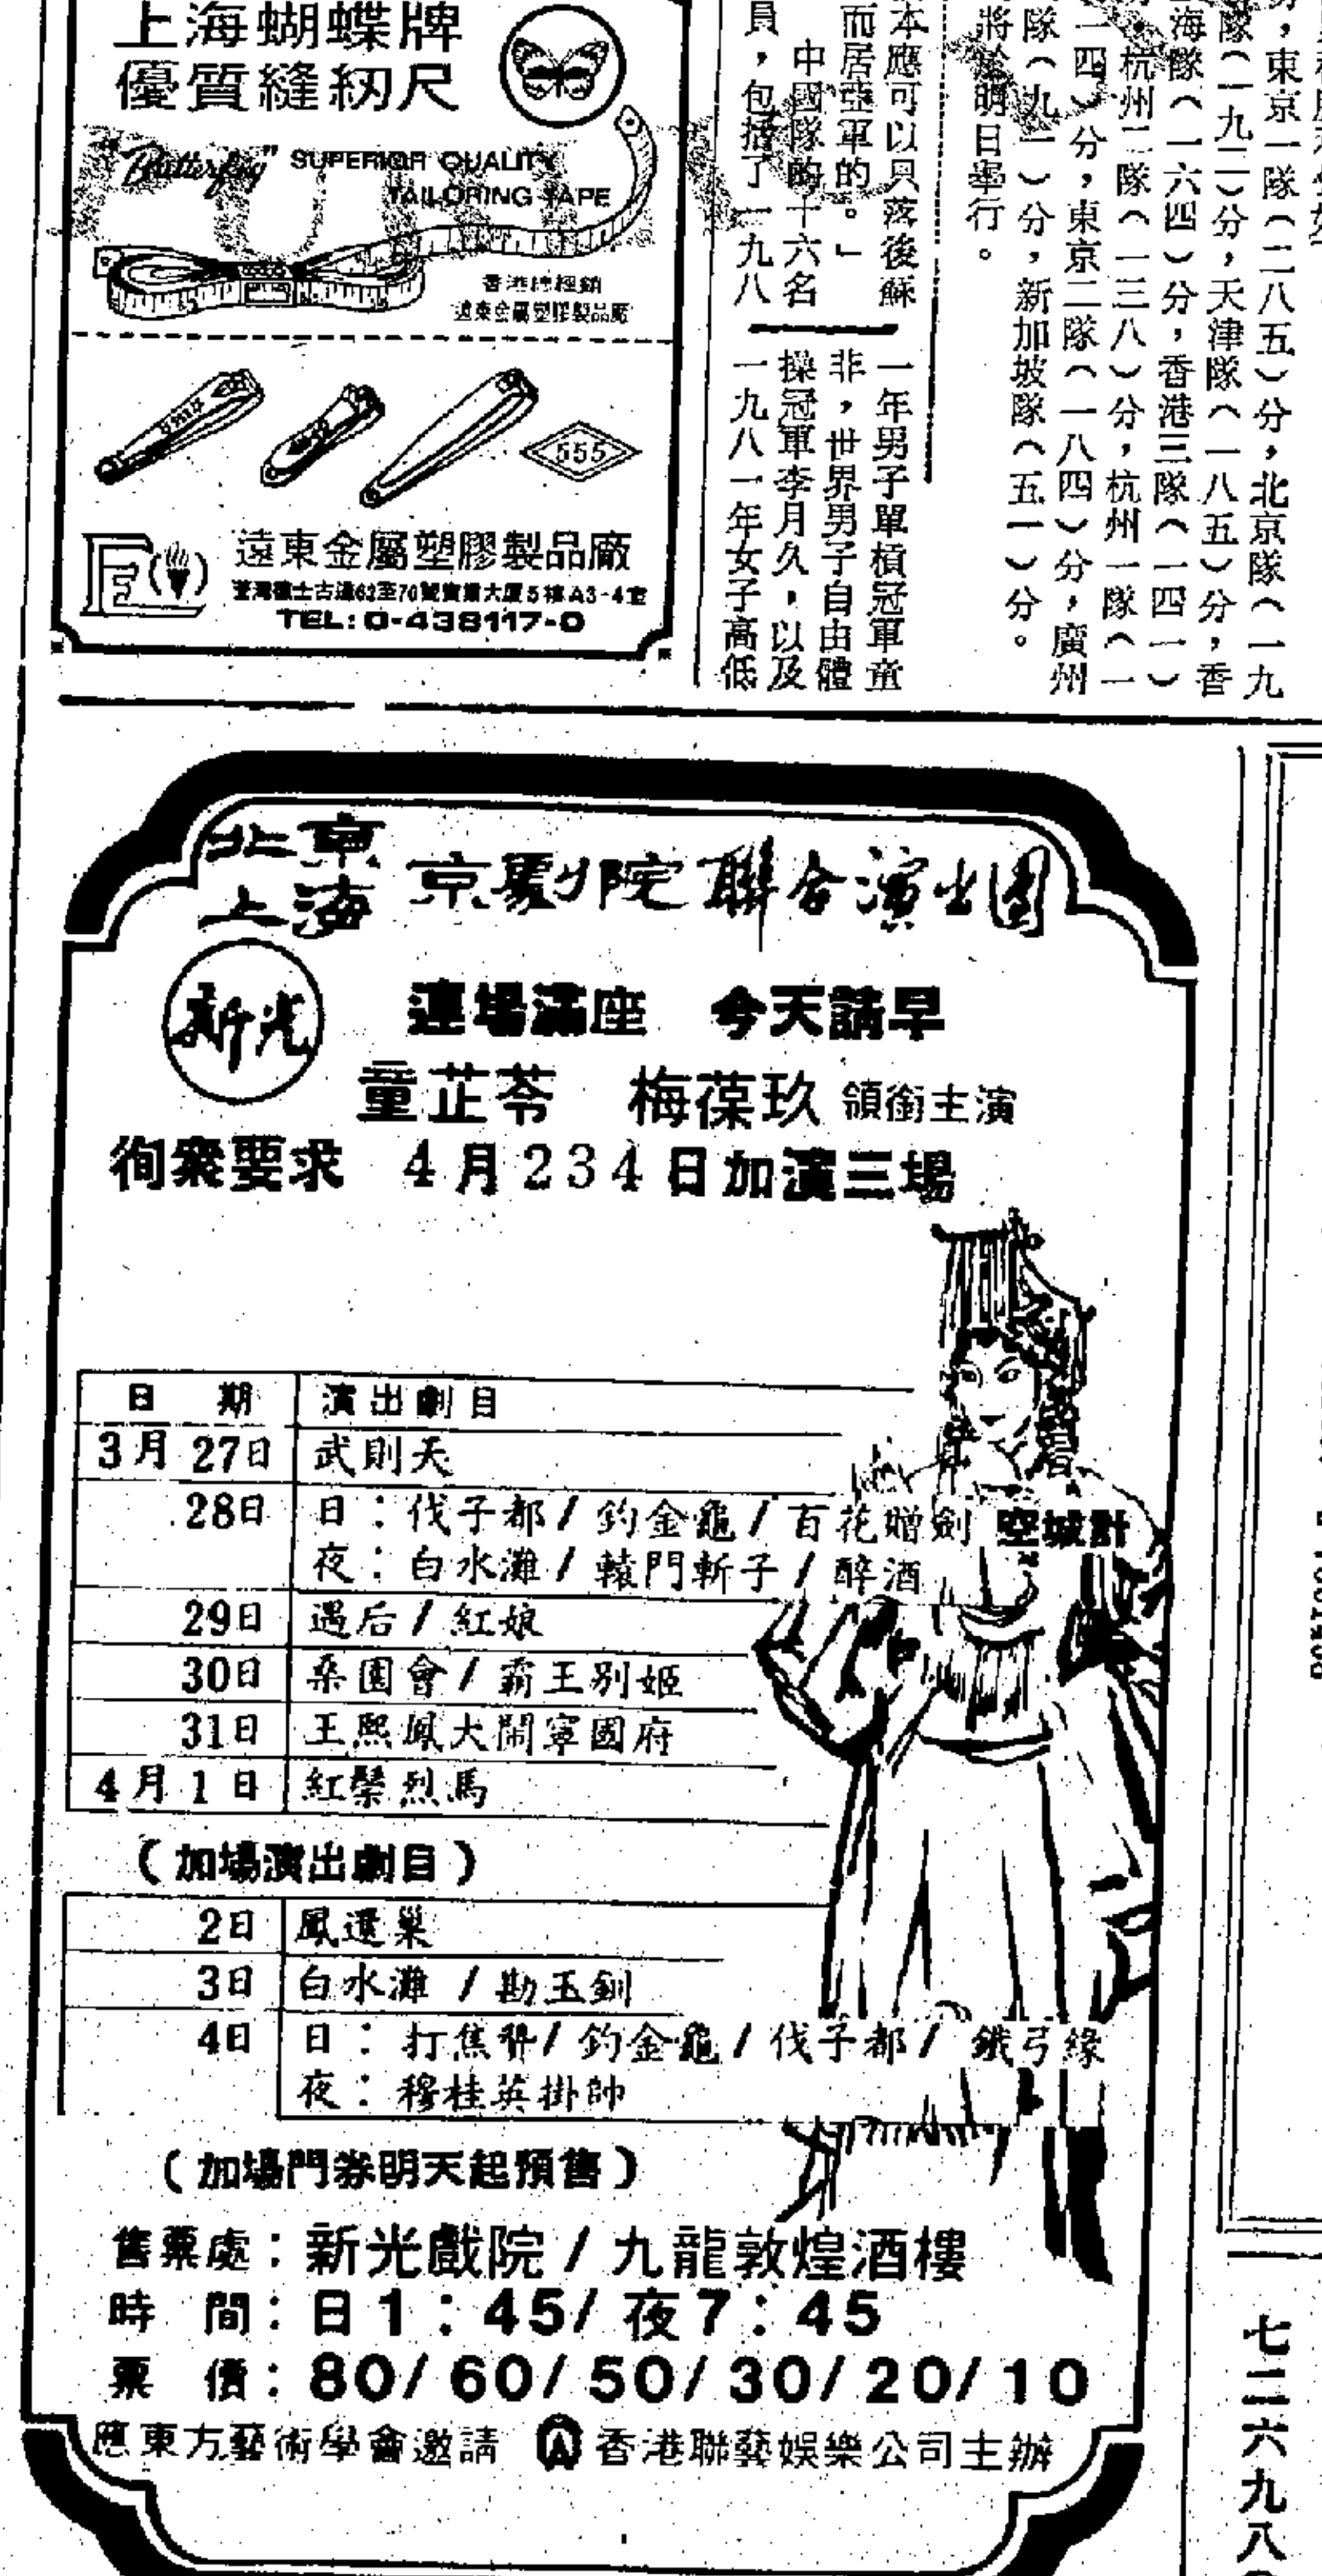 上海蝴蝶牌
優質縫紉尺
"Butterfly" SUPERIOR QUALITY
TAILORING TAPE
香港總經銷
遠東金屬塑膠製品廠
555
遠東金屬塑膠製品廠
荃灣德士古道62至70號寶業大厦5樓A3-4室
TEL: 0-438117-0
東京一隊（二八五）分，北京隊（一九
隊（一九二）分，天津隊（一八五）分，香
海隊（一六四）分，香港三隊（一四一）
杭州二隊（一三八）分，杭州一隊（一
一四）分，東京二隊（一八四）分，廣州
隊（九一）分，新加坡隊（五一）分。
將於明日舉行。
本應可以只落後蘇
而居亞軍的。」
中國隊的十六名
員，包括了一九八
一年男子單槓冠軍童
非，世界男子自由體
操冠軍李月久，以及
一九八一年女子高低
北京
上海
京劇院聯合演出團
新光
連場滿座 今天請早
童芷苓 梅葆玖 領銜主演
徇衆要求 4月234日加演三場
日 期 演出劇目
3月27日 武則天
28日 日：伐子都/釣金龜/百花贈劍 空城計
夜：白水灘/轅門斬子/醉酒
29日 遇后/紅娘
30日 桑園會/霸王別姬
31日 王熙鳳大鬧寧國府
4月1日 紅鬃烈馬
（加場演出劇目）
2日 鳳還巢
3日 白水灘/勘玉釧
4日 日：打焦贊/釣金龜/伐子都/鐵弓緣
夜：穆桂英掛帥
（加場門券明天起預售）
售票處：新光戲院/九龍敦煌酒樓
時 間：日1：45/夜7：45
票 價：80/60/50/30/20/10
應東方藝術學會邀請 香港聯藝娛樂公司主辦
七二六九八